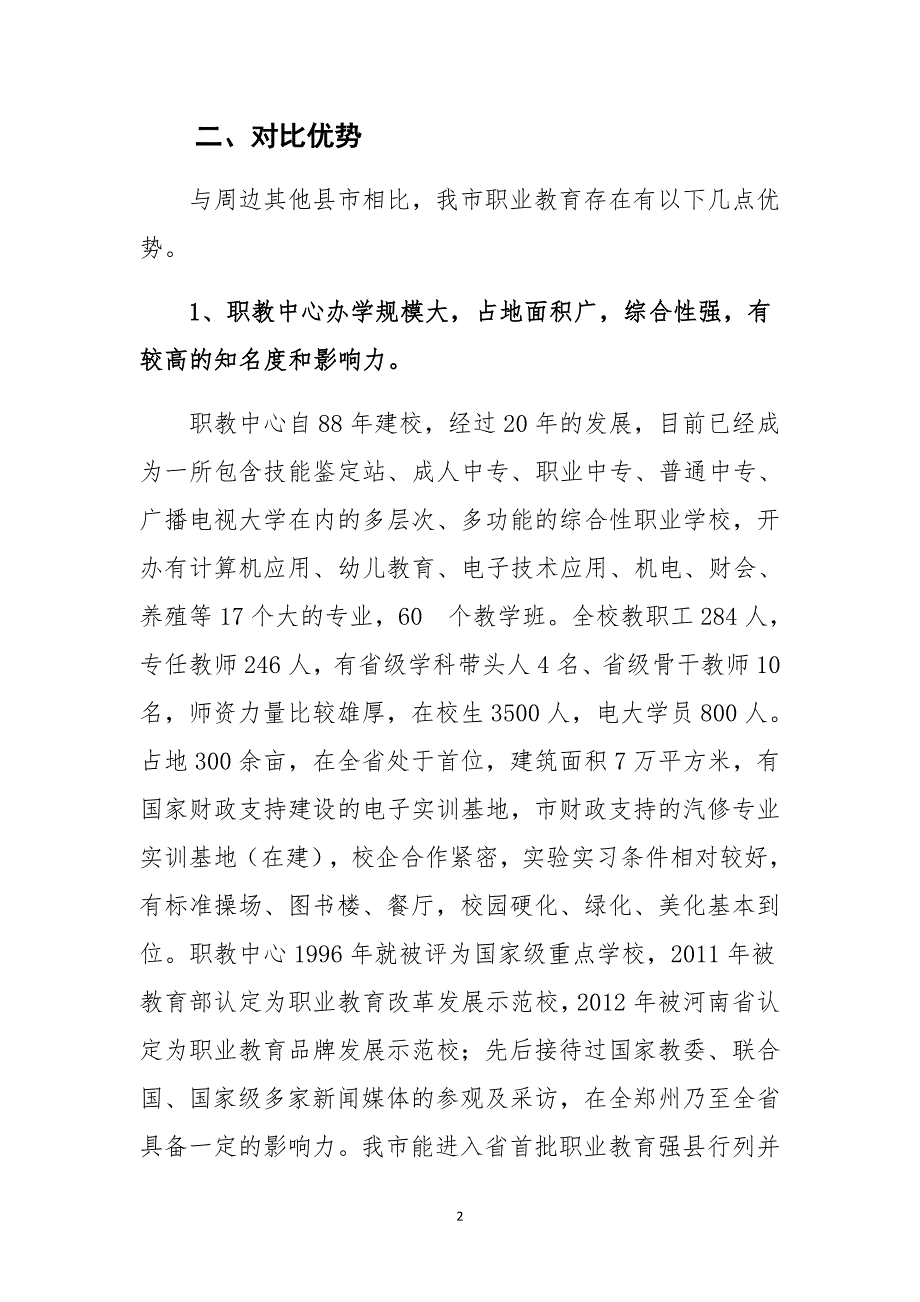 二、对比优势
与周边其他县市相比，我市职业教育存在有以下几点优
势。
1、职教中心办学规模大，占地面积广，综合性强，有
较高的知名度和影响力。
职教中心自 88 年建校，经过 20 年的发展，目前已经成
为一所包含技能鉴定站、成人中专、职业中专、普通中专、
广播电视大学在内的多层次、多功能的综合性职业学校，开
办有计算机应用、幼儿教育、电子技术应用、机电、财会、
养殖等 17 个大的专业，60　个教学班。全校教职工 284 人，
专任教师 246 人，有省级学科带头人 4 名、省级骨干教师 10
名，师资力量比较雄厚，在校生 3500 人，电大学员 800 人。
占地 300 余亩，在全省处于首位，建筑面积 7 万平方米，有
国家财政支持建设的电子实训基地，市财政支持的汽修专业
实训基地（在建），校企合作紧密，实验实习条件相对较好，
有标准操场、图书楼、餐厅，校园硬化、绿化、美化基本到
位。职教中心 1996 年就被评为国家级重点学校，2011 年被
教育部认定为职业教育改革发展示范校，2012 年被河南省认
定为职业教育品牌发展示范校；先后接待过国家教委、联合
国、国家级多家新闻媒体的参观及采访，在全郑州乃至全省
具备一定的影响力。我市能进入省首批职业教育强县行列并
2